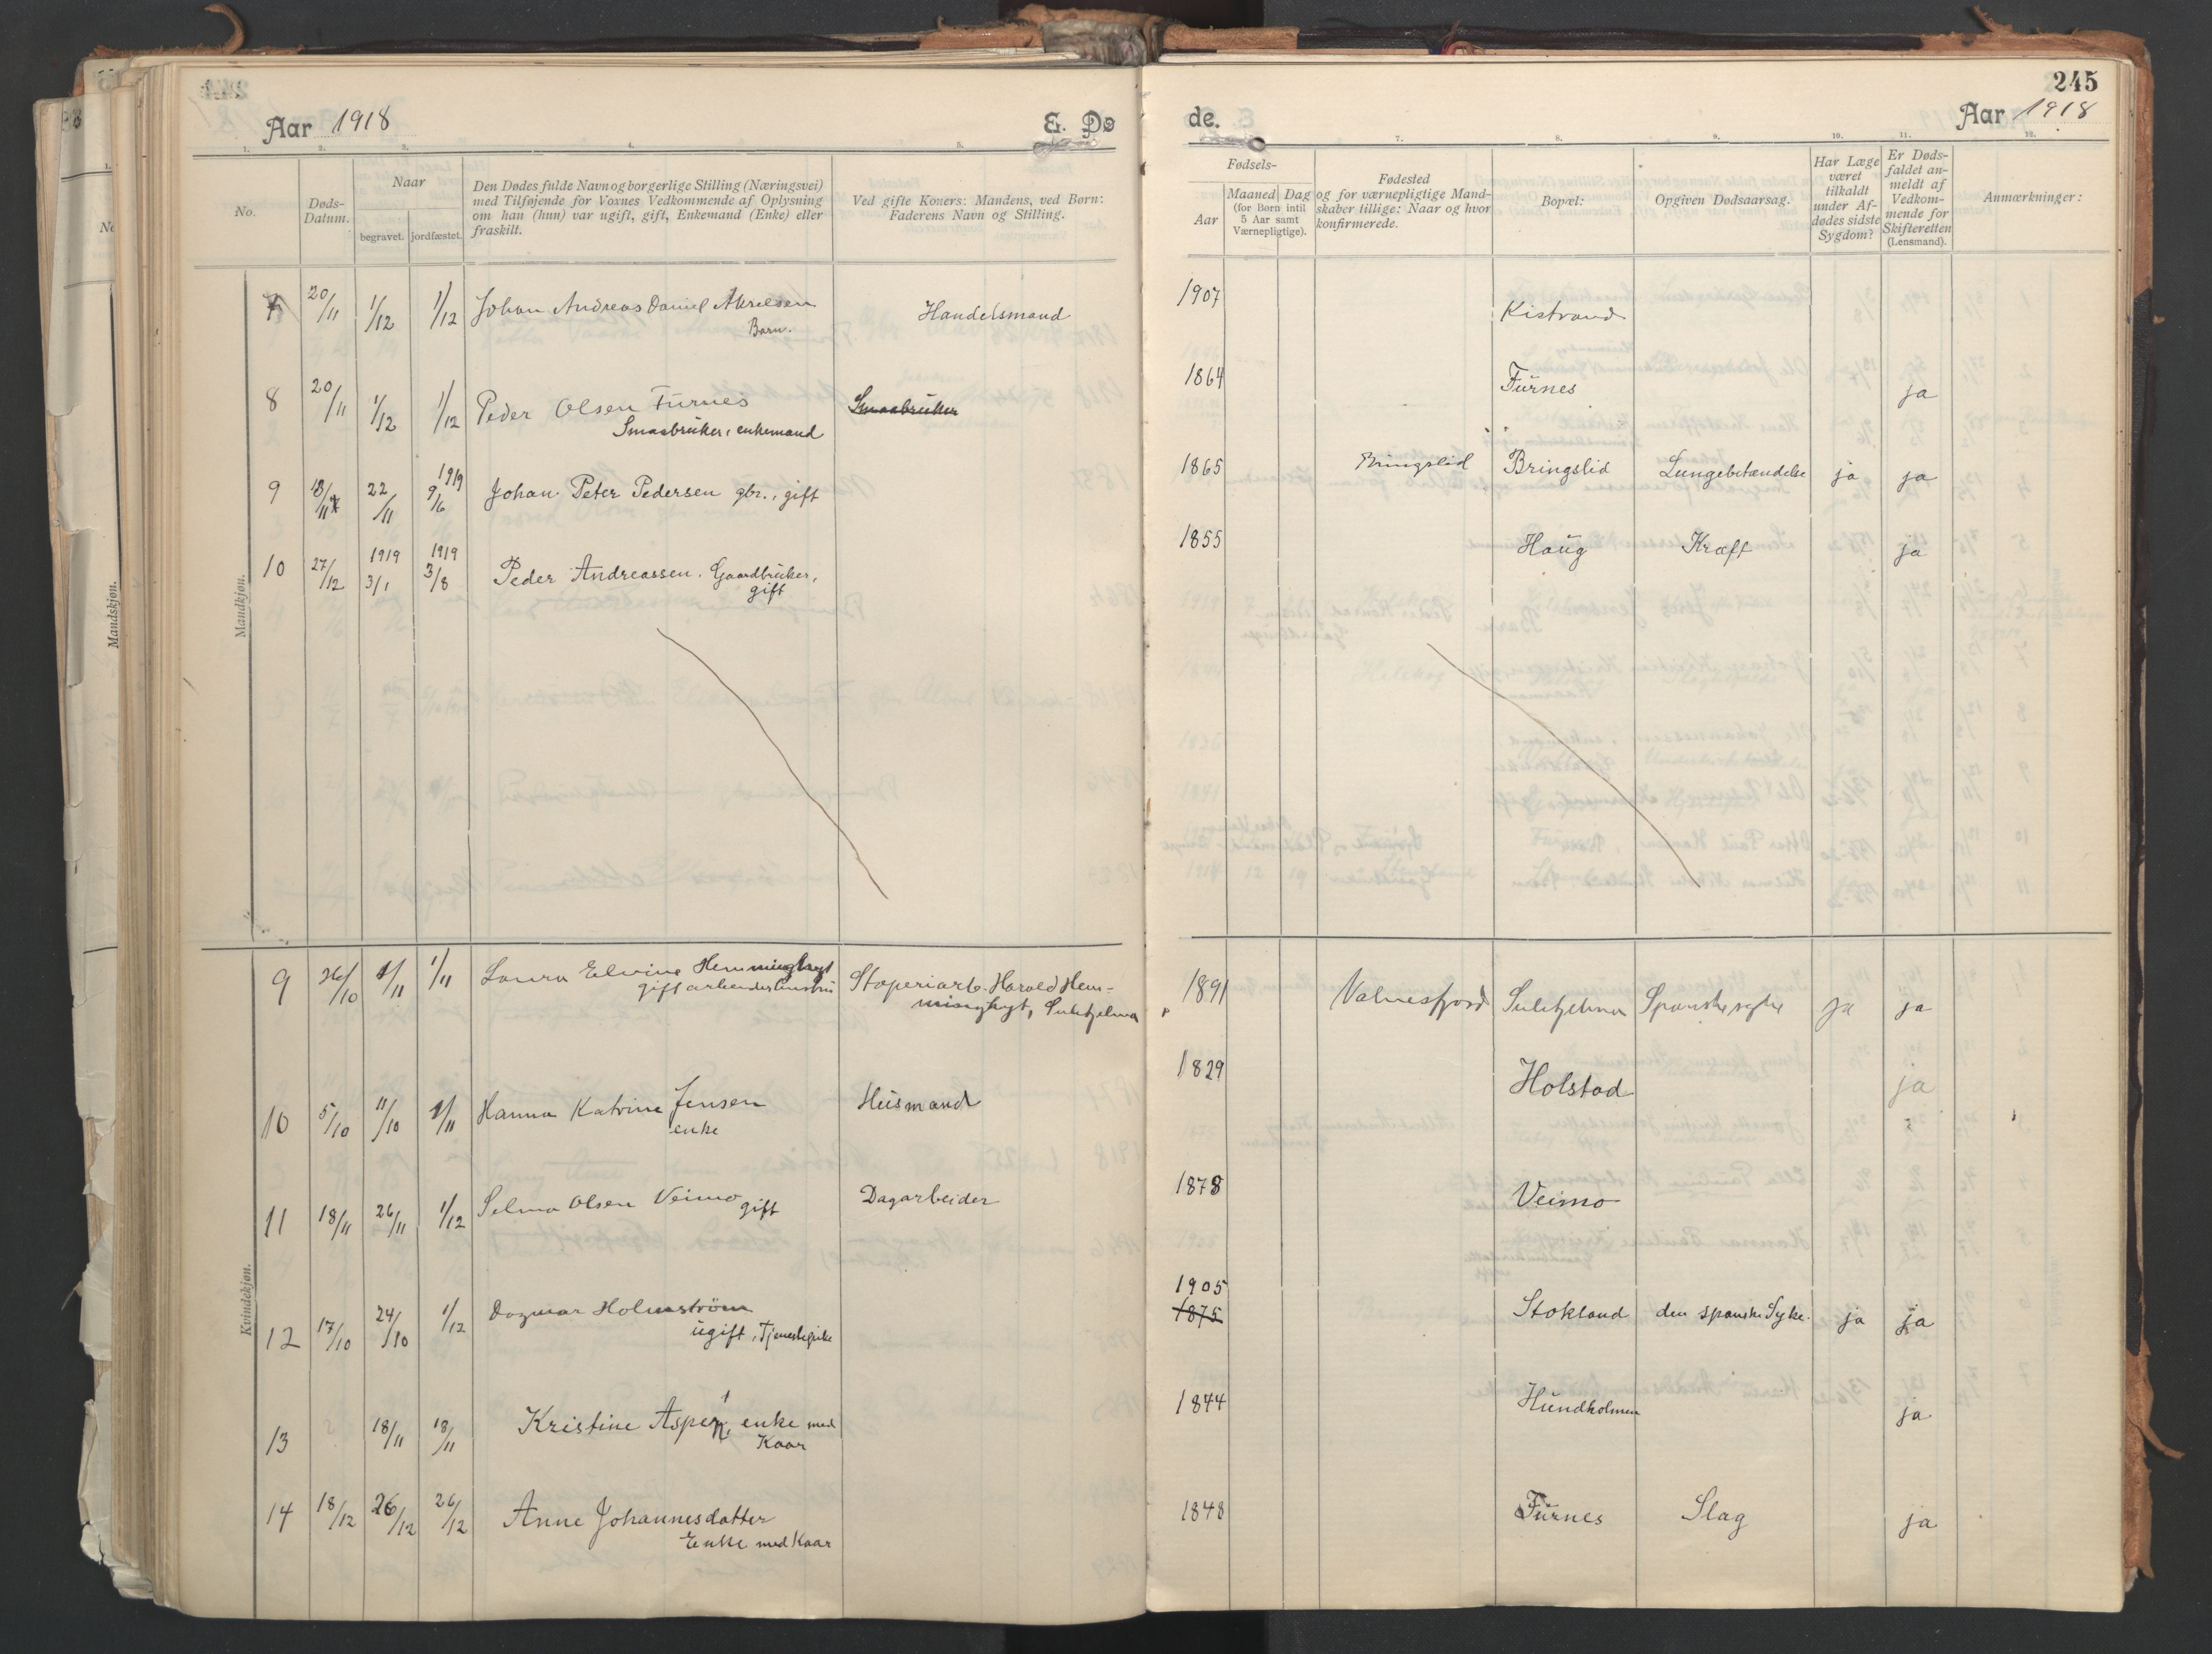 Aar 1918
E. Dø
1. 2. 3. 4. 5.
No.
Døds-Datum.
Naar
begravet. jordfæstet.
Den Dødes fulde Navn og borgerlige Stilling (Næringsvei)
med Tilføjende for Voxnes Vedkommende af Oplysning
om han (hun) var ugift, gift, Enkemand (Enke) eller
fraskilt.
Ved gifte Koners: Mandens, ved Børn:
Faderens Navn og Stilling.
Mandkjøn.
7 20/11 1/12 1/12 Johan Andreas Daniel Akselsen Handelsmand
Barn.
8 20/11 1/12 1/12 Peder Olsen Furnes Smaabruker
Smaabruker, enkemand
9 18/11 22/11 1919 9/6 Johan Peter Pedersen gbr., gift
10 27/12 1919 3/1 1919 3/8 Peder Andreassen. Gaardbruker,
gift
Kvindekjøn.
9 26/10 1/11 1/11 Laura Elvine Hemminghyt Støperiarb. Harald Hem-
gift arbeiderhustru minghyt, Sulitjelma
10 5/10 11/10 1/11 Hanna Katrine Jensen Husmand
enke
11 18/11 26/11 1/12 Selma Olsen Veimo gift Dagarbeider
12 17/10 24/10 1/12 Dagmar Holmström
ugift, Tjenestepike
13 18/11 18/11 Kristine Aspen, enke med
Kaar
14 18/12 26/12 26/12 Anne Johannesdatter
Enke med Kaar
245
de.
Aar 1918
7. 8. 9. 10. 11. 12.
Fødsels-
Aar
Maaned Dag
(for Børn indtil
5 Aar samt
Værnepligtige).
Fødested
og for værnepligtige Mand-
skaber tillige: Naar og hvor
konfirmerede.
Bopæl:
Opgiven Dødsaarsag.
Har Læge
været
tilkaldt
under Af-
dødes sidste
Sygdom?
Er Døds-
faldet an-
meldt af
Vedkom-
mende for
Skifteretten
(Lensmand).
Anmærkninger:
1907 Kistrand
1864 Furnes ja
1865 Bringslid Bringslid Lungebetændelse ja ja
1855 Haug Kræft ja
1891 Valnesfjord Sulitjelma Spanske syke ja ja
1829 Holstad ja
1878 Veimo
1905
1875 Stokland den spanske Syke. ja ja
1844 Hundholmen ja
1848 Furnes Slag ja
Mandskjøn.